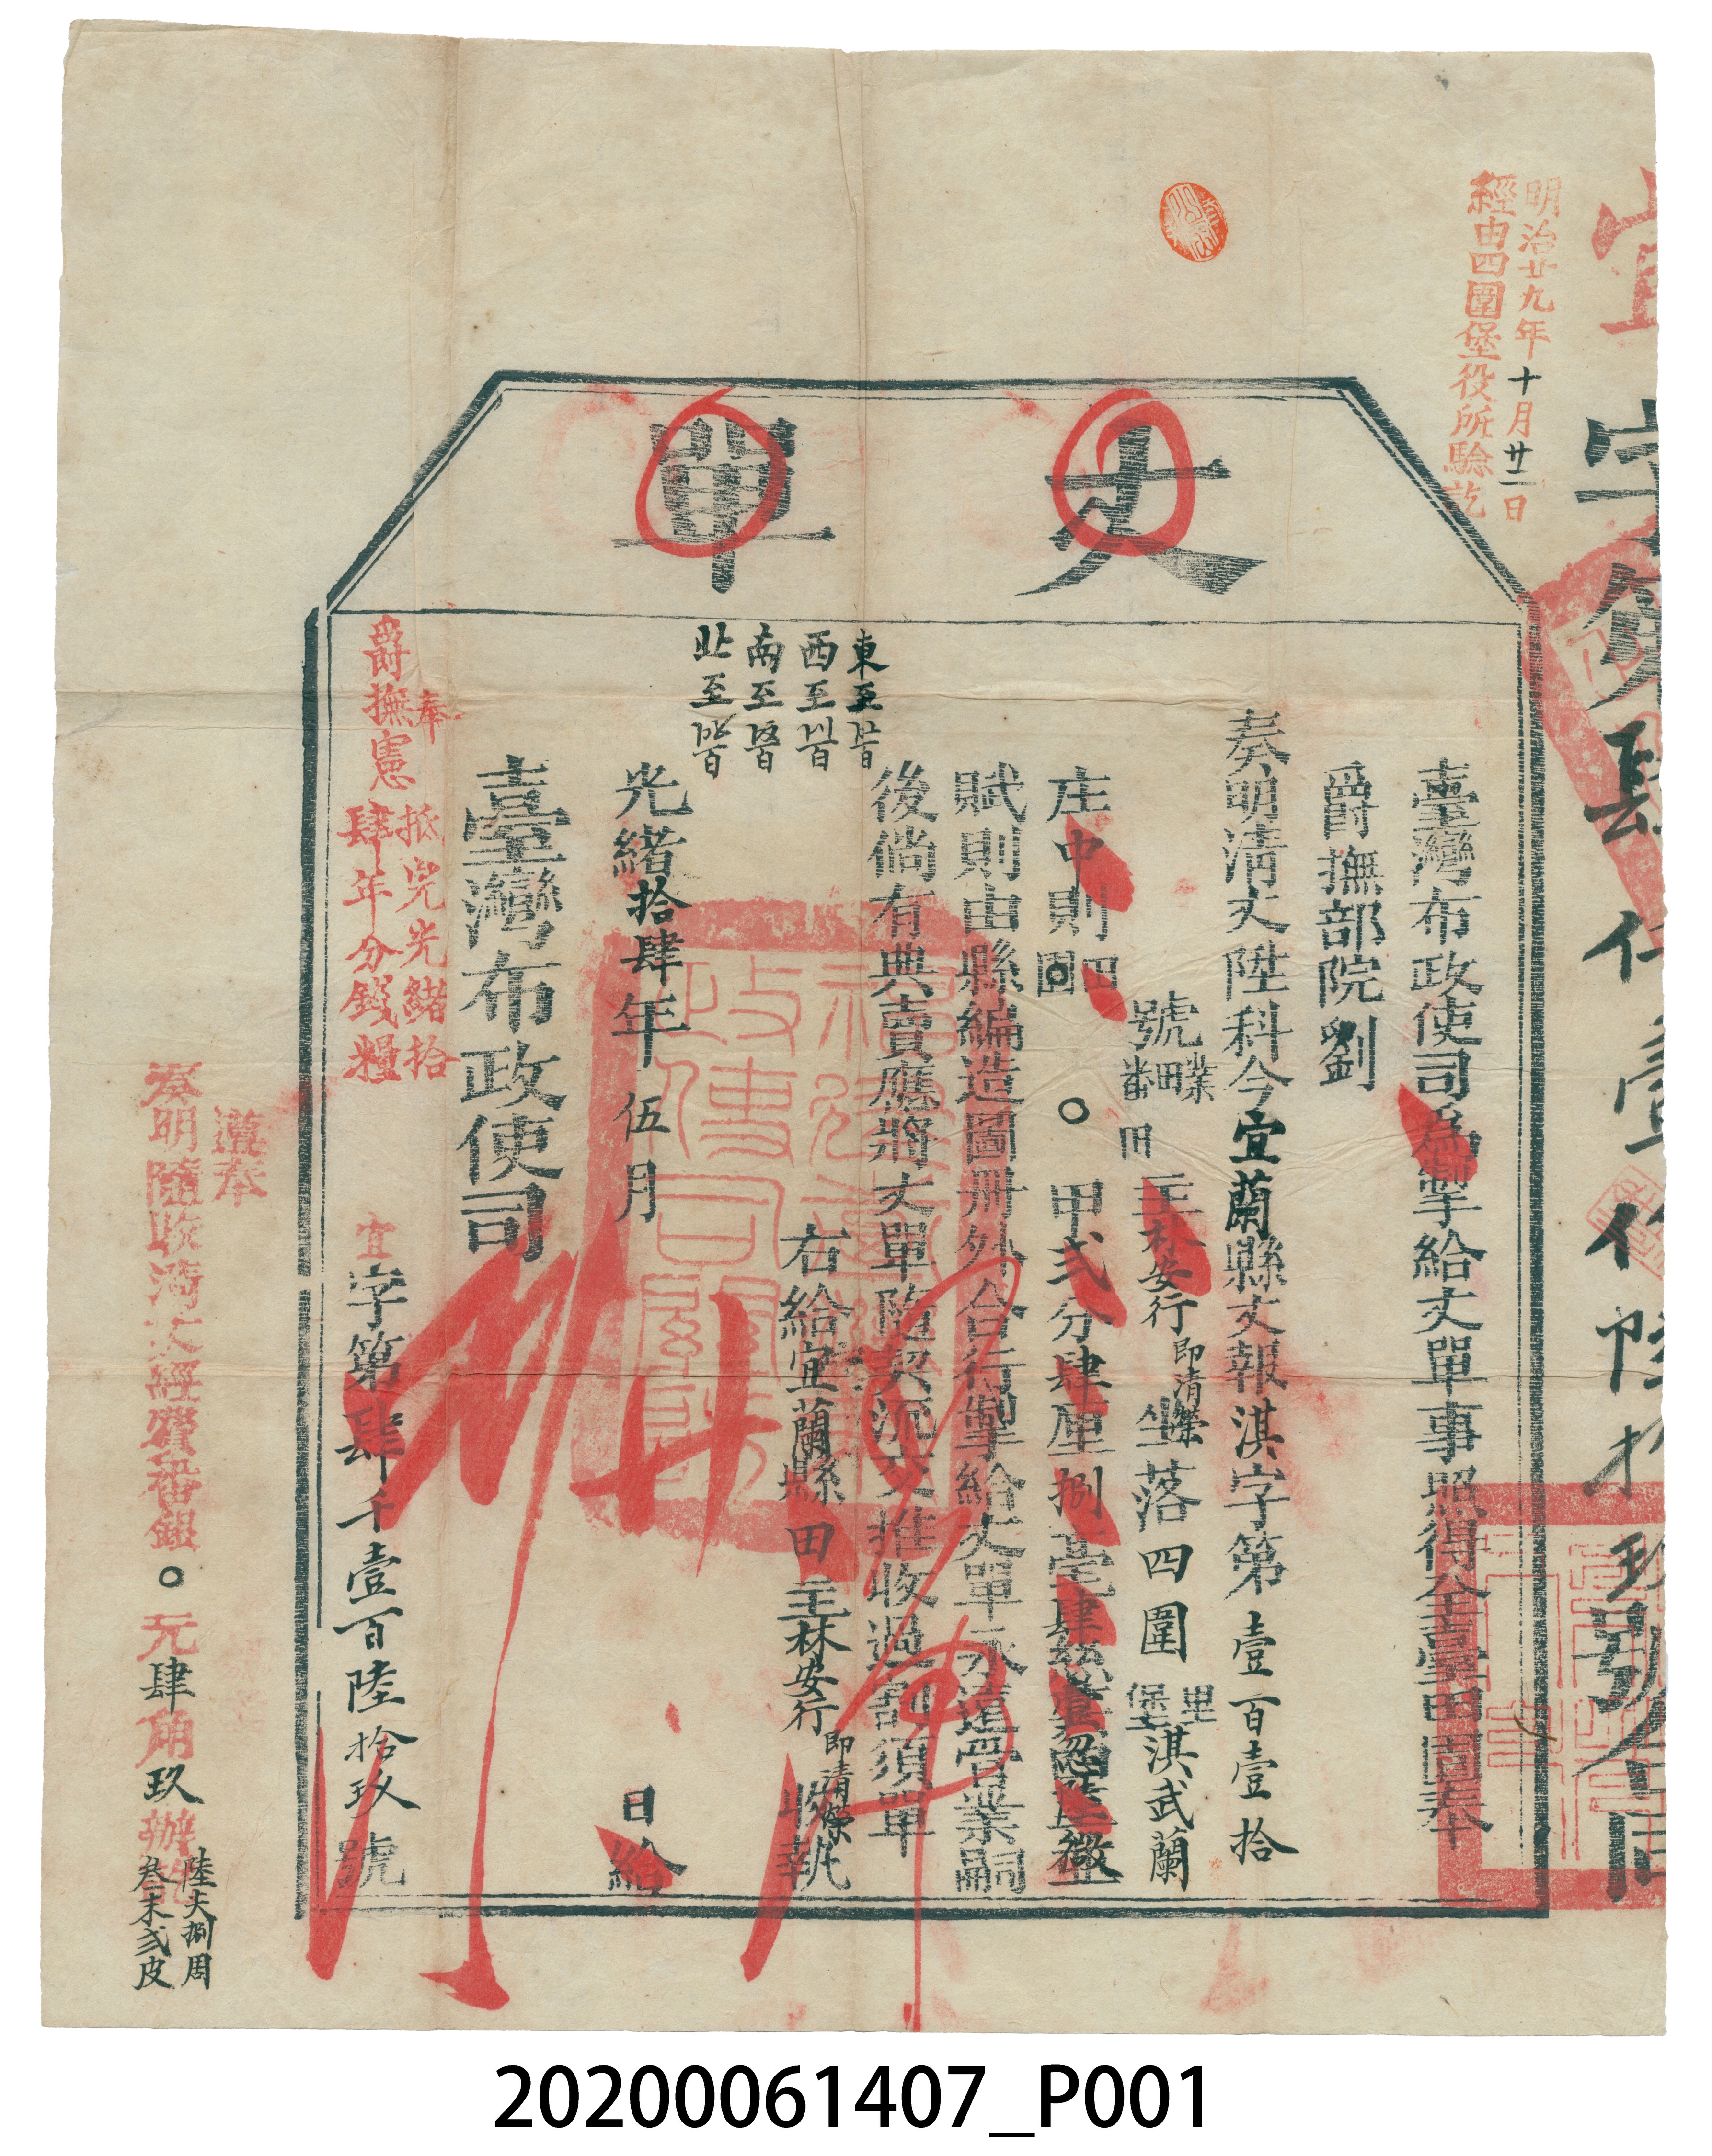 明治廿九年十月廿二日
經由四圍堡役所驗訖
丈單
臺灣布政使司爲掣給丈單事照得全臺田園奉
爵撫部院劉
奏明清丈陞科今宜蘭縣丈報淇字第壹百壹拾
號業田番田主林安行即清榮坐落四圍里堡淇武蘭
庄中則田園〇甲弍分肆厘捌毫肆絲壹忽陸微
賦則由縣編造圖冊外合行掣給丈單永遠管業嗣
後倘有典賣應將丈單隨契流交推收過割須單
東至皆
西至皆
南至皆
北至皆
右給宜蘭縣田主林安行即清榮收執
光緒拾肆年伍月日給
臺灣布政使司
奉
爵撫憲抵完光緒拾肆年分錢糧
宜字第肆千壹百陸拾玖號
遵奉
奏明隨收清丈經費番銀〇元肆角玖辦